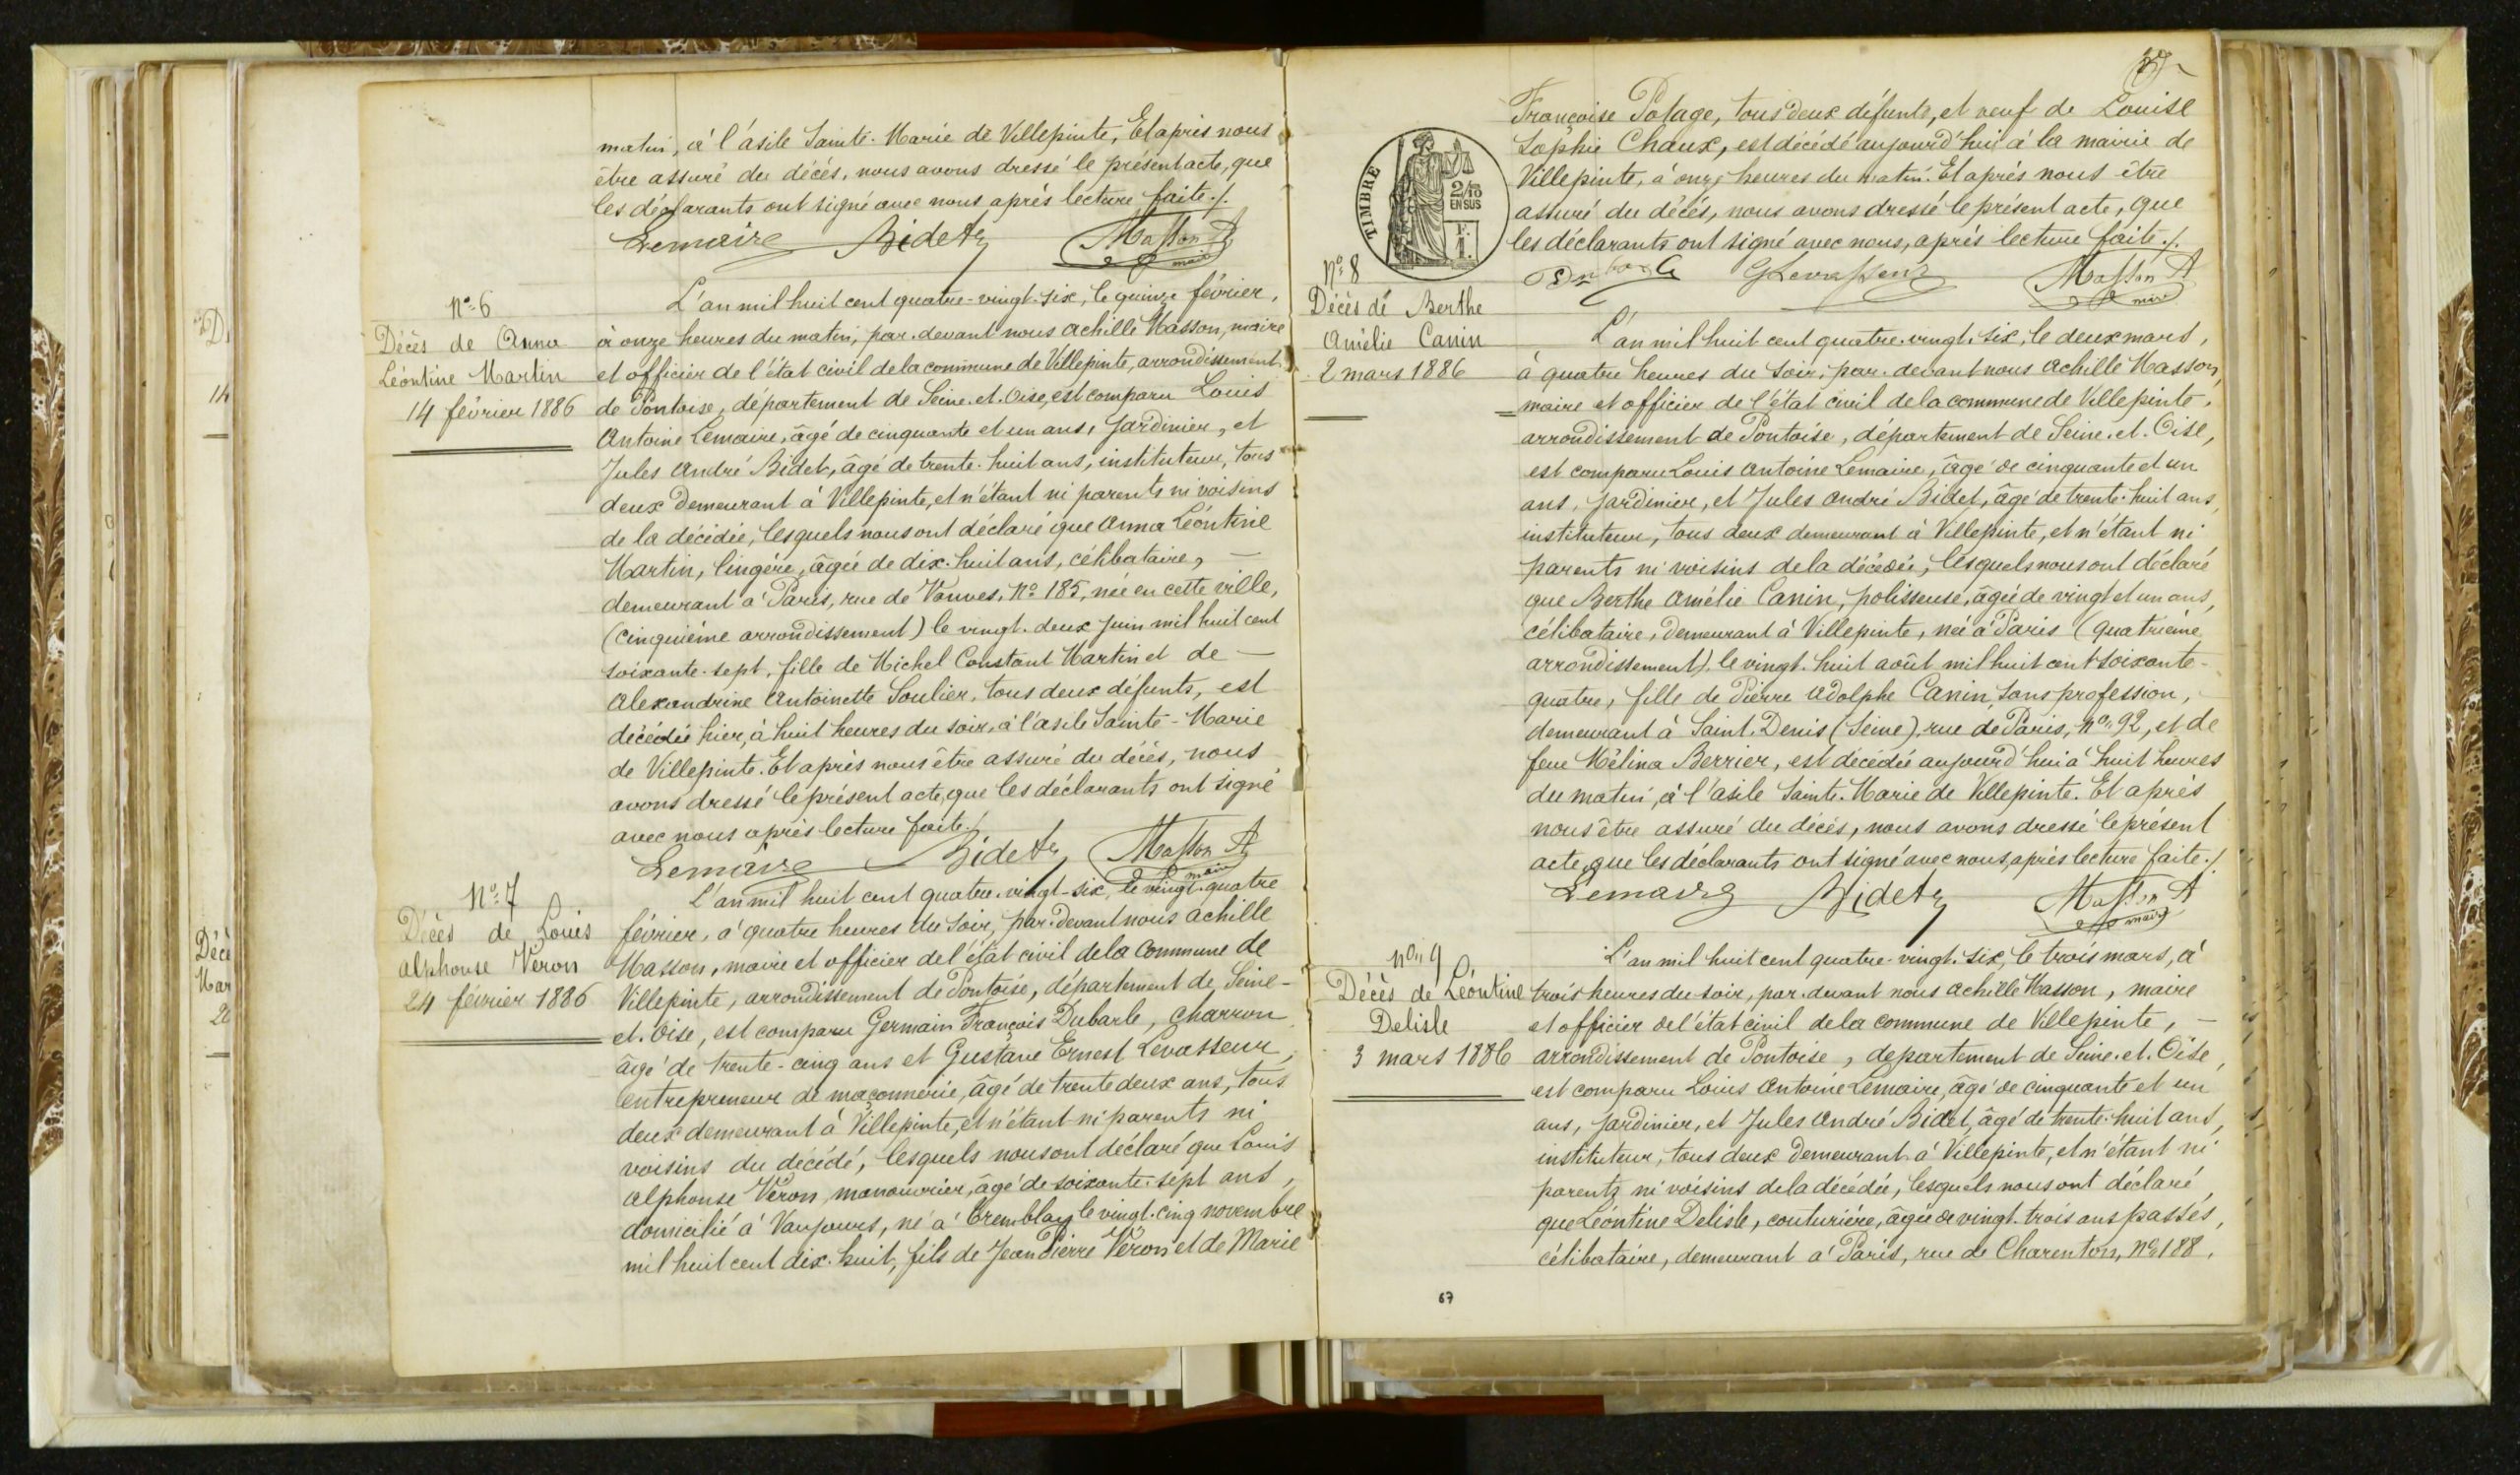 matin, à l'asile Sainte-Marie de Villepinte. Et après nous
être assuré du décès, nous avons dressé le présent acte, que
les déclarants ont signé avec nous après lecture faite./.
Lemaire Bidet Masson A
maire
N° 6
Décès de Anna
Léontine Martin
14 février 1886
L'an mil huit cent quatre-vingt-six, le quinze février,
à onze heures du matin, par-devant nous Achille Masson, maire
et officier de l'état civil de la commune de Villepinte, arrondissement
de Pontoise, département de Seine-et-Oise, est comparu Louis
Antoine Lemaire, âgé de cinquante et un ans, jardinier, et
Jules André Bidet, âgé de trente-huit ans, instituteur, tous
deux demeurant à Villepinte, et n'étant ni parents ni voisins
de la décédée, lesquels nous ont déclaré que Anna Léontine
Martin, lingère, âgée de dix-huit ans, célibataire, —
demeurant à Paris, rue de Vanves, N° 185, née en cette ville,
(cinquième arrondissement) le vingt-deux juin mil huit cent
soixante-sept, fille de Michel Constant Martin et de —
Alexandrine Antoinette Soulier, tous deux défunts, est
décédée hier, à huit heures du soir, à l'asile Sainte-Marie
de Villepinte. Et après nous être assuré du décès, nous
avons dressé le présent acte, que les déclarants ont signé
avec nous après lecture faite./.
Lemaire Bidet Masson A
maire
N° 7
Décès de Louis
Alphonse Véron
24 février 1886
L'an mil huit cent quatre-vingt-six, le vingt-quatre
février, à quatre heures du soir, par-devant nous Achille
Masson, maire et officier de l'état civil de la commune de
Villepinte, arrondissement de Pontoise, département de Seine-
et-Oise, est comparu Germain François Dubarle, charron
âgé de trente-cinq ans et Gustave Ernest Levasseur,
entrepreneur de maçonnerie, âgé de trente deux ans, tous
deux demeurant à Villepinte, et n'étant ni parents ni
voisins du décédé, lesquels nous ont déclaré que Louis
Alphonse Véron, manouvrier, âgé de soixante-sept ans,
domicilié à Vaujours, né à Tremblay le vingt-cinq novembre
mil huit cent dix-huit, fils de Jean Pierre Véron et de Marie
Françoise Potage, tous deux défunts, et veuf de Louise
Sophie Chaux, est décédé aujourd'hui à la mairie de
Villepinte, à onze heures du matin. Et après nous être
assuré du décès, nous avons dressé le présent acte, que
les déclarants ont signé avec nous, après lecture faite./.
TIMBRE
2/10
EN SUS
F.
1.
G Levasseur Masson A
maire
N° 8
Décès de Berthe
Amélie Canin
2 mars 1886
L'an mil huit cent quatre-vingt-six, le deux mars,
à quatre heures du soir, par-devant nous Achille Masson,
maire et officier de l'état civil de la commune de Villepinte,
arrondissement de Pontoise, département de Seine-et-Oise,
est comparu Louis Antoine Lemaire, âgé de cinquante et un
ans, jardinier, et Jules André Bidet, âgé de trente-huit ans,
instituteur, tous deux demeurant à Villepinte, et n'étant ni
parents ni voisins de la décédée, lesquels nous ont déclaré
que Berthe Amélie Canin, polisseuse, âgée de vingt et un ans,
célibataire, demeurant à Villepinte, née à Paris (quatrième
arrondissement), le vingt-huit août mil huit cent soixante-
quatre, fille de Pierre Adolphe Canin, sans profession,
demeurant à Saint-Denis (Seine), rue de Paris, N° 92, et de
feue Mélina Berrier, est décédée aujourd'hui à huit heures
du matin, à l'asile Sainte-Marie de Villepinte. Et après
nous être assuré du décès, nous avons dressé le présent
acte, que les déclarants ont signé avec nous, après lecture faite./.
Lemaire Bidet Masson A
maire
N° 9
Décès de Léontine
Delisle
3 mars 1886
L'an mil huit cent quatre-vingt-six, le trois mars, à
trois heures du soir, par-devant nous Achille Masson, maire
et officier de l'état civil de la commune de Villepinte, —
arrondissement de Pontoise, département de Seine-et-Oise,
est comparu Louis Antoine Lemaire, âgé de cinquante et un
ans, jardinier, et Jules André Bidet, âgé de trente-huit ans,
instituteur, tous deux demeurant à Villepinte, et n'étant ni
parents ni voisins de la décédée, lesquels nous ont déclaré
que Léontine Delisle, couturière, âgée de vingt-trois ans passés,
célibataire, demeurant à Paris, rue de Charenton, N° 188,
67